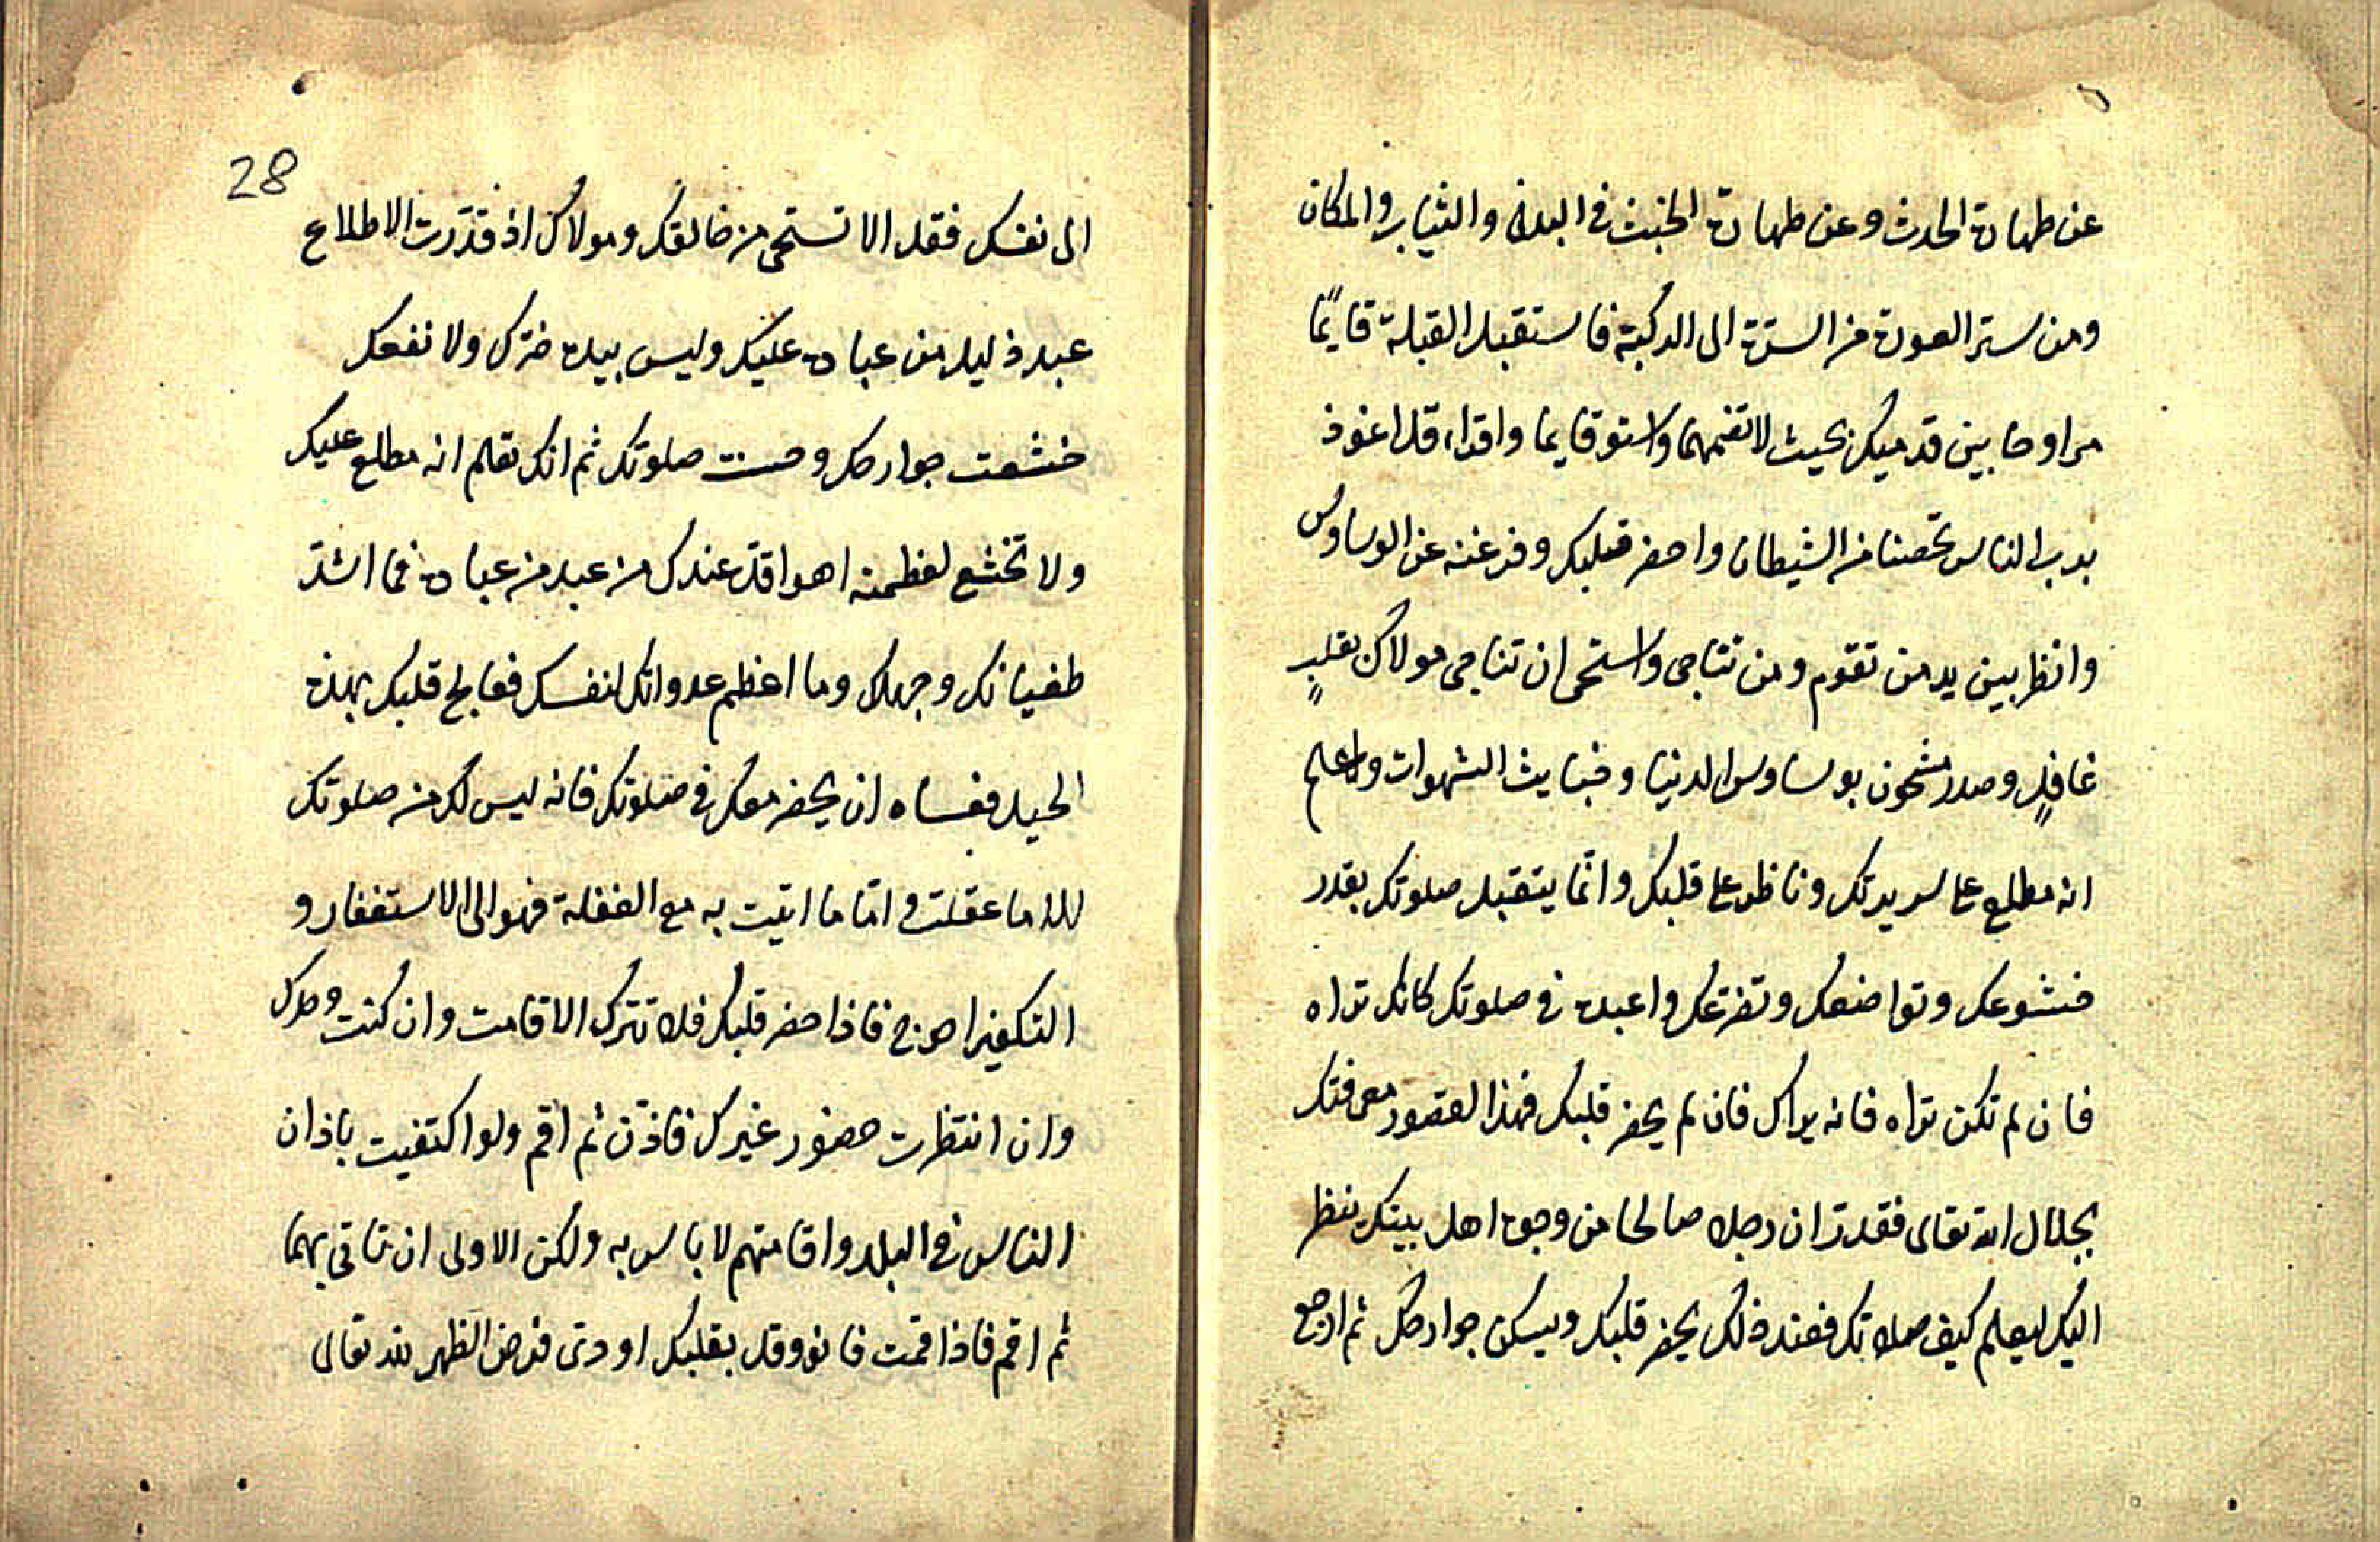 عن طهارة الحدث وعن طهارة الخبث في البدن والثياب والمكان
ومن ستر العورة من السترة الى الركبة فاستقبل القبلة قايمًا
مراوحا بين قدميك بحيث لا تضمهما واستو قايما واقراء قل اعوذ
برب الناس تحصنا من الشيطان واحضر قلبك وفرغه عن الوساوس
وانظر بين يد من تقوم ومن تناجى واستحى ان تناجى مولاك بقلبٍ
غافلٍ وصدر مشحون بوساوس الدنيا وخبايث الشهوات واعلم
انه مطلع على سريرتك وناظر على قلبك وانّما يتقبل صلوتك بقدر
خشوعك وتواضعك وتضرعك واعبده في صلوتك كانك تراه
فان لم تكن تراه فانه يراك فان لم يحضر قلبك فهذا لقصور معرفتك
بجلال الله تعالى فقدر ان رجلا صالحا من وجوه اهل بيتك ينظر
اليك ليعلم كيف صلاتك فعند ذلك يحضر قلبك ويسكن جوارحك ثم ارجع
28
الى نفسك فقل الا تستحى من خالقك ومولاك اذ قدّرت الاطلاع
عبد ذليل من عباده عليك وليس بيده ضرك ولا نفعك
خشعت جوارحك وحسنت صلوتك ثم انك تعلم انه مطلع عليك
ولا تخشع لعظمته اهو اقل عندك من عبد من عباده فما اشدّ
طغيانك وجهلك وما اعظم عدوانك لنفسك فعالج قلبك بهذه
الحيل فعساه ان يحضر معك في صلوتك فانه ليس لك من صلوتك
الا ما عقلت وامّا ما اتيت به مع الغفلة فهو الى الاستغفار و
التكفير احوج فاذا حضر قلبك فلا تترك الاقامت وان كنت وحدك
وان انتظرت حضور غيرك فاذّن ثم اقم ولو اكتفيت باذان
الناس في البلد واقامتهم لا باس به ولكن الاولى ان تاتى بهما
ثم اقم فاذا قمت فانو وقل بقلبك اودى فرض الظهر لله تعالى